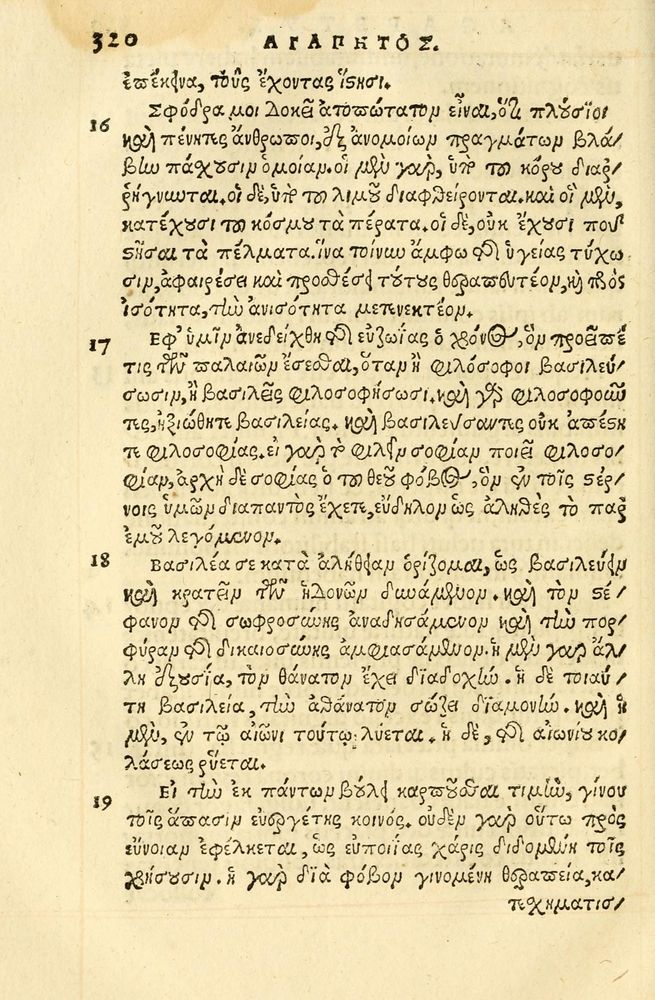 320 ΑΓΑΠΗΤΟΣ.
ἐπέκεινα, τοὺς ἔχοντας ἵστησι.
16 Σφόδρα μοι δοκεῖ ἀτοπώτατον εἶναι, ὅτι πλούσιοι
καὶ πένητες ἄνθρωποι, ἐξ ἀνομοίων πραγμάτων βλά/
βην πάσχουσιν ὁμοίαν. οἱ μὲν γὰρ, ὑπὸ τοῦ κόρου διαῤ/
ῥήγνυνται. οἱ δὲ, ὑπὸ τοῦ λιμοῦ διαφθείρονται. καὶ οἱ μὲν,
κατέχουσι τοῦ κόσμου τὰ πέρατα. οἱ δὲ, οὐκ ἔχουσι ποῦ
στῆσαι τὰ πέλματα. ἵνα τοίνυν ἄμφω τῆς ὑγείας τύχω
σιν, ἀφαιρέσει καὶ προσθέσει τούτους θεραπευτέον, καὶ πρὸς
ἰσότητα, τὴν ἀνισότητα μετενεκτέον.
17 Εφ' ὑμῖν ἀνεδείχθη τῆς εὐζωΐας ὁ χρόνος, ὃν προεῖπέ
τις τῶν παλαιῶν ἔσεσθαι, ὅταν ἢ φιλόσοφοι βασιλεύ/
σωσιν, ἢ βασιλεῖς φιλοσοφήσωσι. καὶ γὰρ φιλοσοφοῦν
τες, ἠξιώθητε βασιλείας. καὶ βασιλεύσαντες οὐκ ἀπέστη
τε φιλοσοφίας. εἰ γὰρ τὸ φιλεῖν σοφίαν ποιεῖ φιλοσο/
φίαν, ἀρχὴ δὲ σοφίας ὁ τοῦ θεοῦ φόβος, ὃν ἐν τοῖς στέρ/
νοις ὑμῶν διαπαντὸς ἔχετε, εὔδηλον ὡς ἀληθὲς τὸ παρ'
ἐμοῦ λεγόμενον.
18 Βασιλέα σε κατὰ ἀλήθειαν ὁρίζομαι, ὡς βασιλεύειν
καὶ κρατεῖν τῶν ἡδονῶν δυνάμενον. καὶ τὸν στέ/
φανον τῆς σωφροσύνης ἀναδησάμενον καὶ τὴν πορ/
φύραν τῆς δικαιοσύνης ἀμφιασάμενον. ἡ μὲν γὰρ ἄλ/
λη ἐξουσία, τὸν θάνατον ἔχει διαδοχήν. ἡ δὲ τοιαύ/
τη βασιλεία, τὴν ἀθάνατον σώζει διαμονήν. καὶ ἡ
μὲν, ἐν τῷ αἰῶνι τούτῳ λύεται. ἡ δὲ, τῆς αἰωνίου κο/
λάσεως ῥύεται.
19 Ει τὴν ἐκ πάντων βούλει καρποῦσθαι τιμὴν, γίνου
τοῖς ἅπασιν εὐεργέτης κοινός. οὐδὲν γὰρ οὕτω πρὸς
εὔνοιαν ἐφέλκεται, ὡς εὐποιΐας χάρις διδομένη τοῖς
χρήζουσιν. ἡ γὰρ διὰ φόβον γινομένη θεραπεία, κα/
τεσχηματισ/